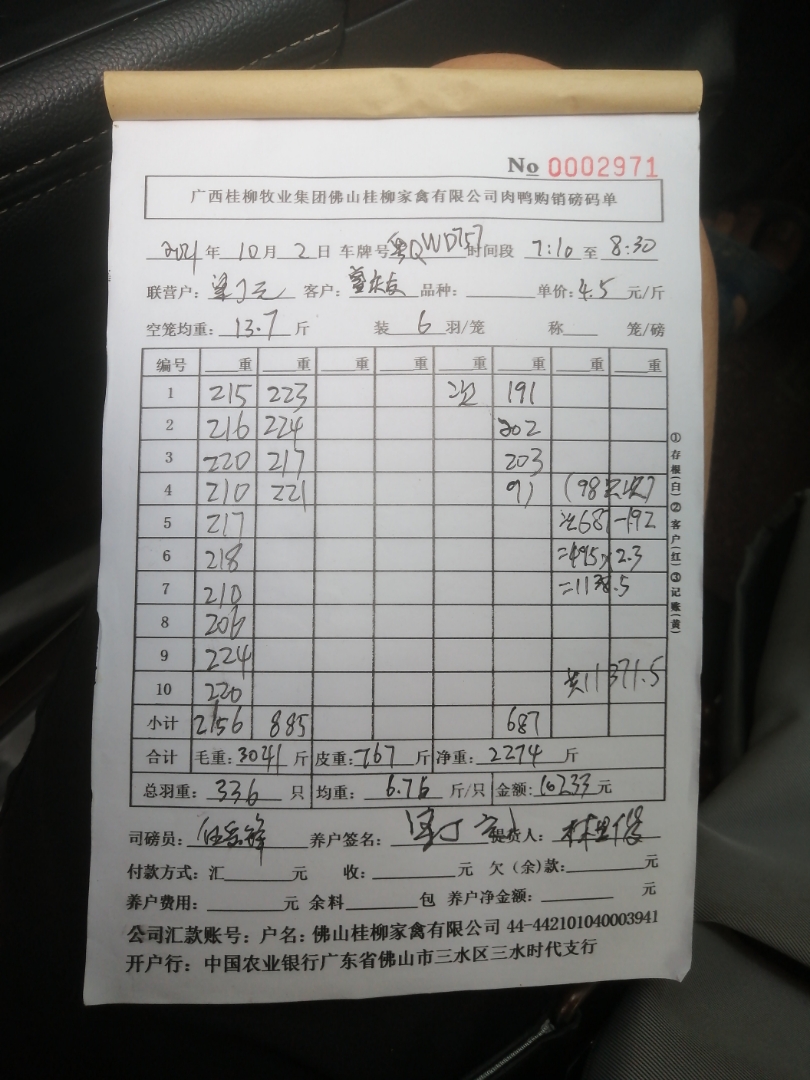 No 0002971
广西桂柳牧业集团佛山桂柳家禽有限公司肉鸭购销磅码单
2021年 10月 2日 车牌号粤QWD757时间段 7:10 至 8:30
联营户: 客户: 品种: 单价:4.5 元/斤
空笼均重: 13.7 斤 装 6 羽/笼 称 笼/磅
编号 重 重 重 重 重 重 重 重
1 215 223 191
2 216 224 202
3 220 217 203
4 210 221 91 (98
5 217 687-192
6 218 =495×2.3
7 210 =1138.5
8 206
9 224
10 220 共11371.5
小计 2156 885 687
合计 毛重:3041斤 皮重:767斤 净重:2274斤
总羽重: 336 只 均重: 6.76 斤/只 金额:10233元
司磅员: 养户签名: 提货人:
付款方式:汇 元 收: 元 欠(余)款: 元
养户费用: 元 余料 包 养户净金额: 元
公司汇款账号:户名:佛山桂柳家禽有限公司 44-442101040003941
开户行:中国农业银行广东省佛山市三水区三水时代支行
①存根(白)②客户(红)③记账(黄)